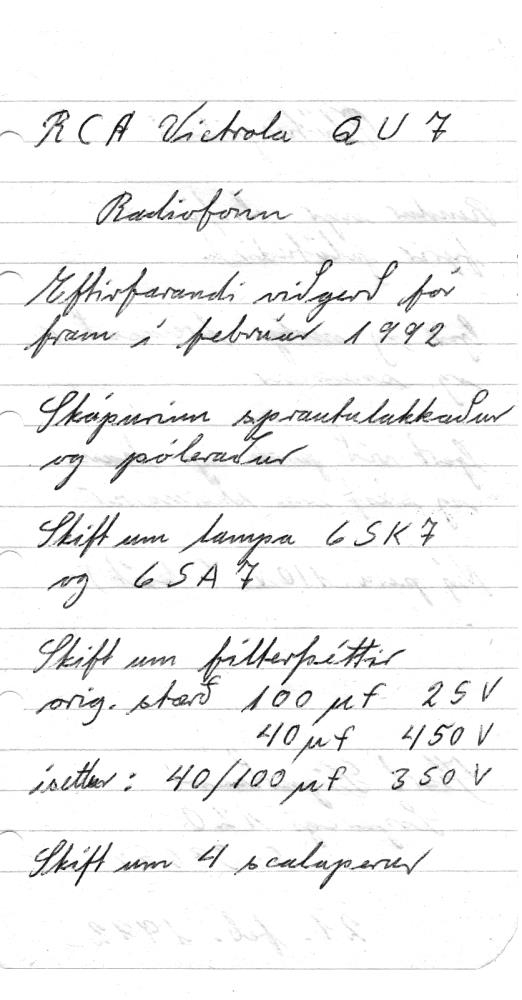 RCA Victrola QU7
Radiofónn
Eftirfarandi viðgerð fór
fram í febrúar 1992
Skápurinn sprautulakkaður
og póleraður
Skift um lampa 6SK7
og 6SA7
Skift um filterþéttir
orig. stærð 100 µf 25 V
40 µf 450 V
ísettur: 40/100 µf 350 V
Skift um 4 scalaperur